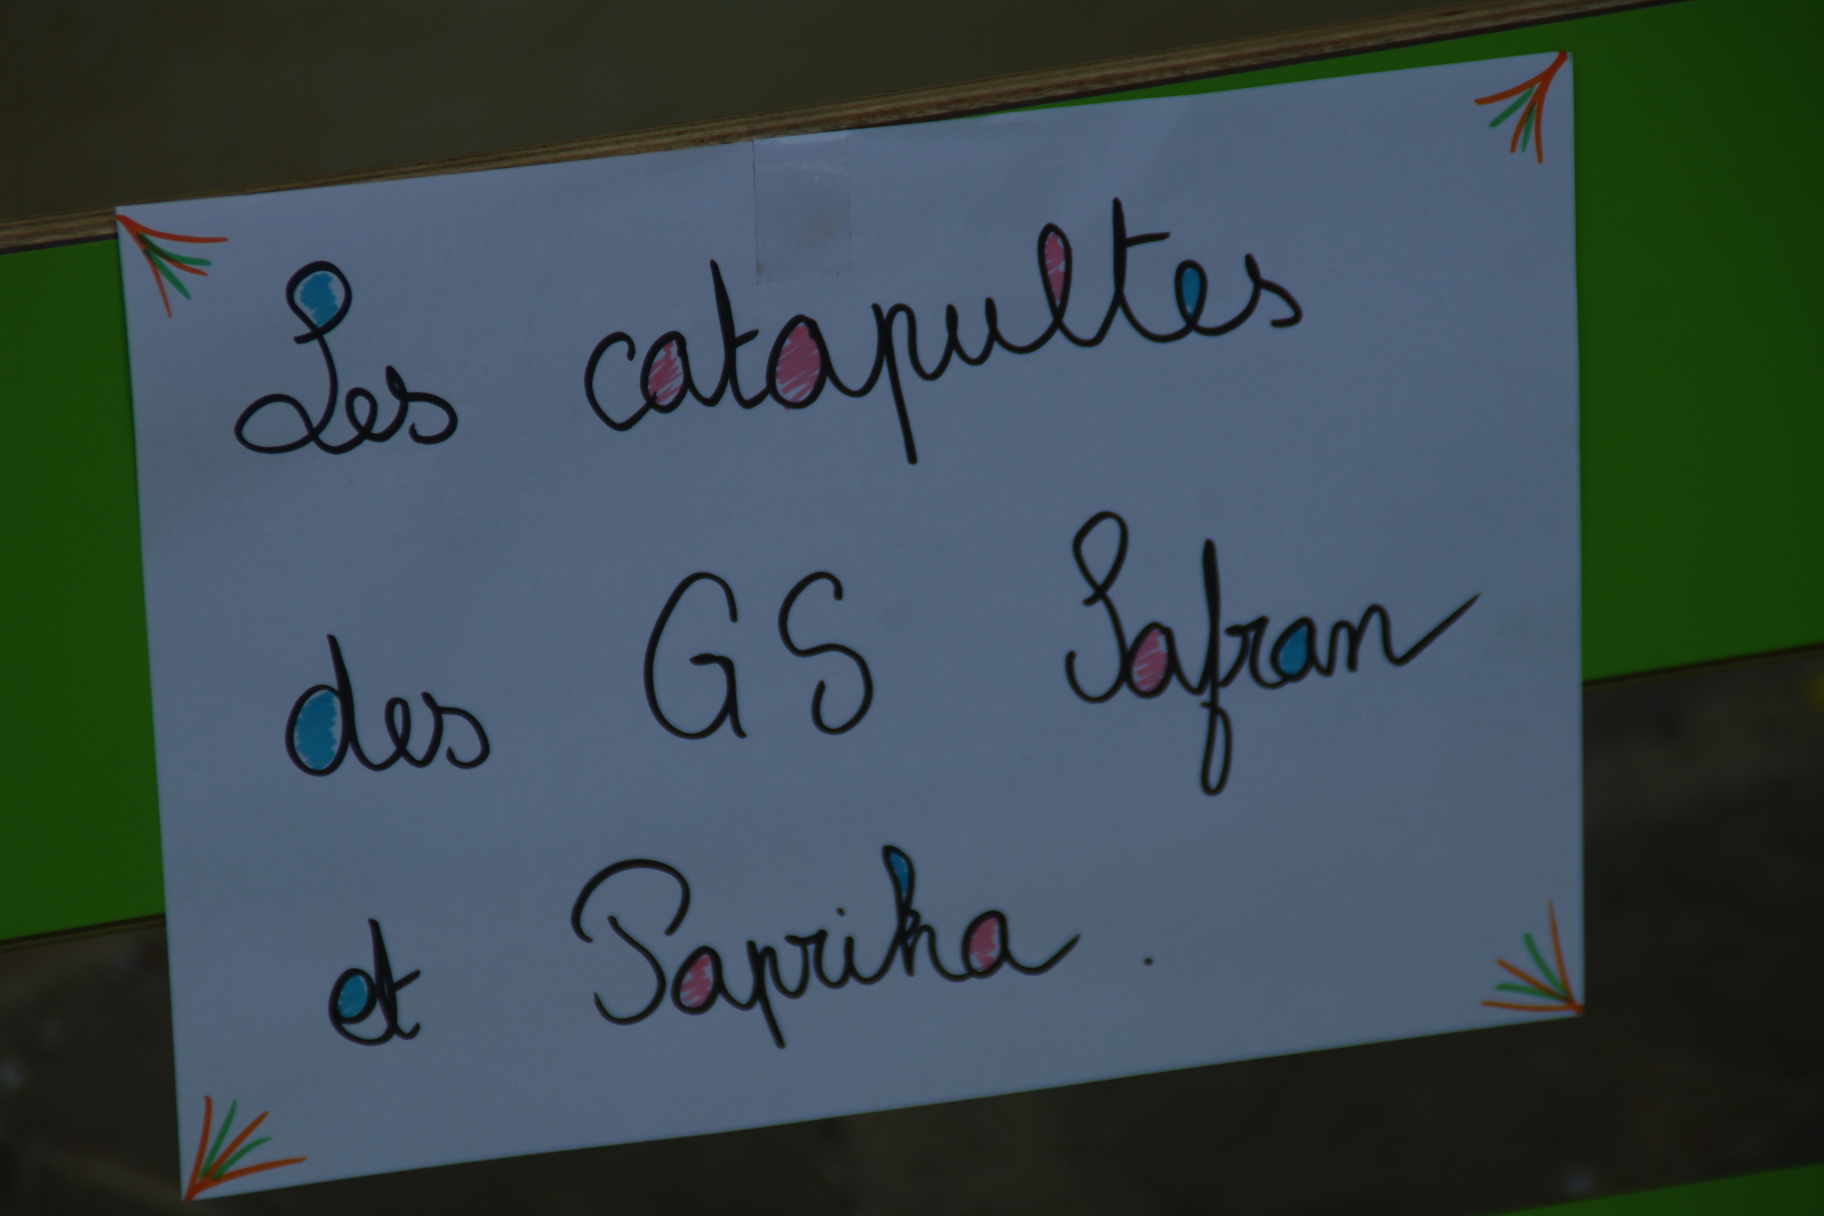 Les catapultes
des GS Safran
et Paprika.